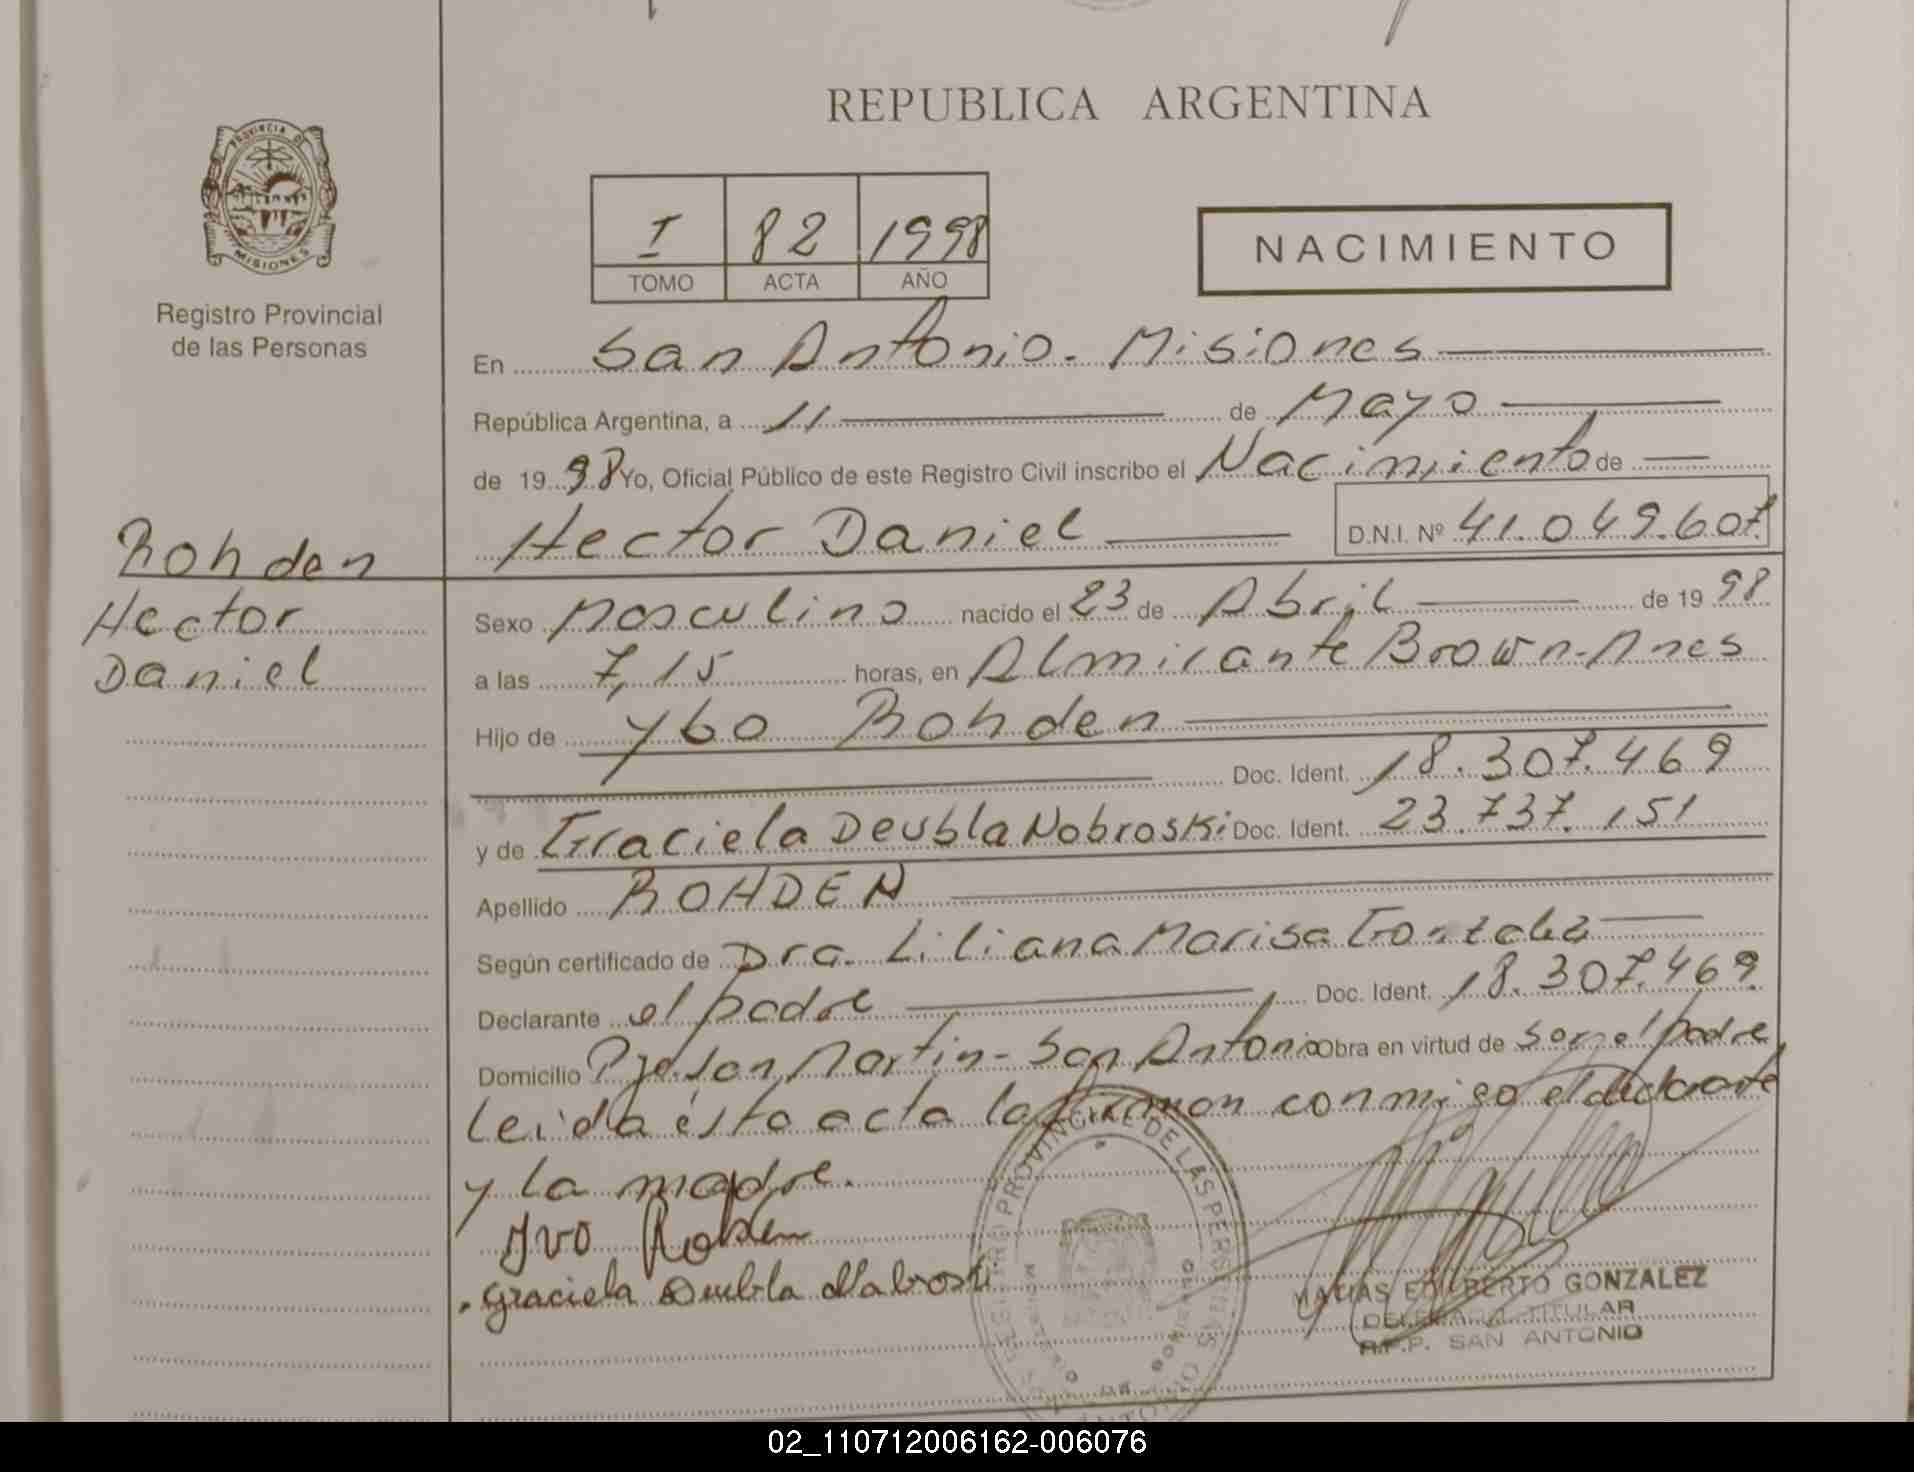 REPUBLICA ARGENTINA
PROVINCIA DE
MISIONES
Registro Provincial
de las Personas
I 82 1998
TOMO ACTA AÑO
NACIMIENTO
En San Antonio - Misiones
República Argentina, a 11 de Mayo
de 1998 Yo, Oficial Público de este Registro Civil inscribo el Nacimiento de
Hector Daniel D.N.I. Nº 41.049.607
Rohden
Hector
Daniel
Sexo Masculino nacido el 23 de Abril de 1998
a las 7,15 horas, en Almirante Brown - Mnes
Hijo de Ybo Rohden
Doc. Ident. 18.307.469
y de Graciela Deubla Nobroski Doc. Ident. 23.737.151
Apellido ROHDEN
Según certificado de Dra. Liliana Marisa Gonzalez
Declarante el padre Doc. Ident. 18.307.469
Domicilio Pje. San Martin - San Antonio Obra en virtud de ser el padre
Leida ésta acta la firman conmigo el declarante
y la madre.
Ivo Rohden
Graciela Deubla Nabroski
REGISTRO PROVINCIAL DE LAS PERSONAS
MISIONES
MATIAS EDILBERTO GONZALEZ
DELEGADO TITULAR
R.P.P. SAN ANTONIO
02_110712006162-006076